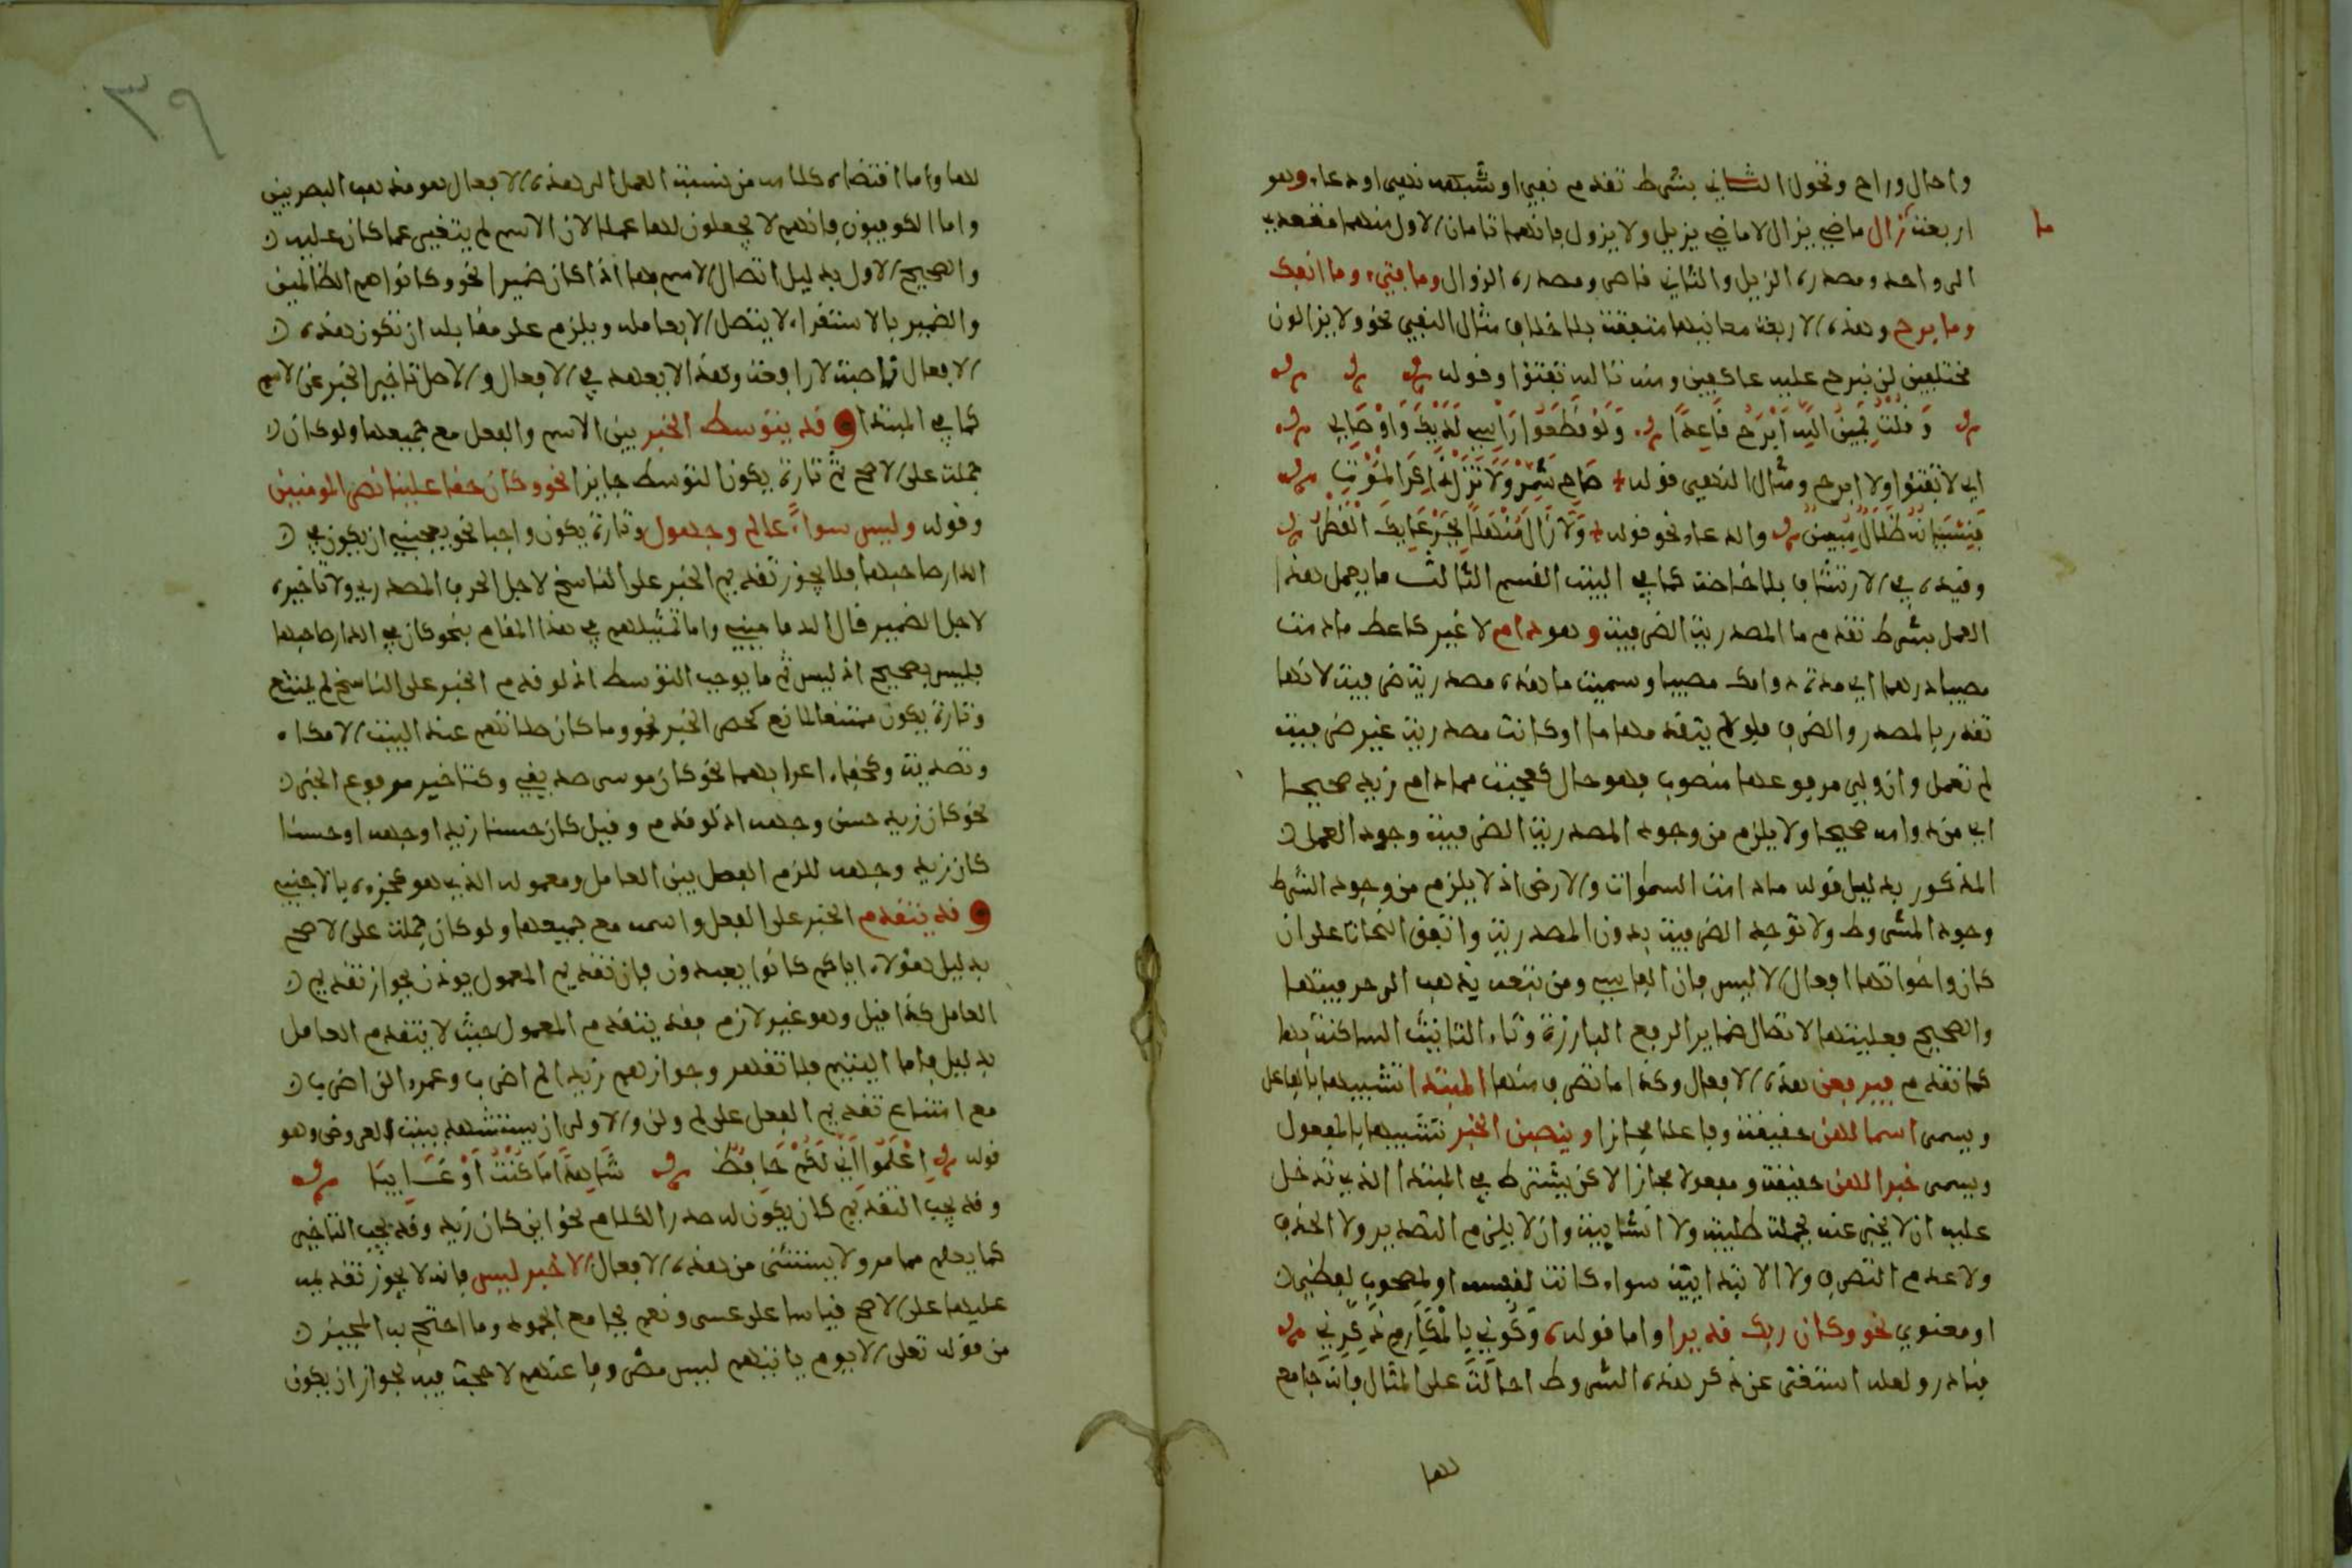 واحال وراح وتحول الثاني بشرط تقدم نفي او شبهه نهي او دعاء وهو
ما
اربعة زال ماضي يزال لا ماضي يزيل ولا يزول فانهما تامان الاول منهما متعد
الى واحد ومصدره الزيل والثاني قاصر ومصدره الزوال وما فتىء وما انفك
وما برح وهذه الاربعة معانيها متفقة بلا خلاف مثال النفي نحو ولا يزالون
مختلفين لن نبرح عليه عاكفين ومنه تالله تفتؤا وقوله
وَقُلْتُ يَمِينُ اللَّهِ أَبْرَحُ قَاعِدًا وَلَوْ قَطَعُوا رَأْسِي لَدَيْكَ وَأَوْصَالِي
اي لا تفتؤا ولا ابرح ومثال النهي قوله صَاحِ شَمِّرْ وَلَا تَزَلْ ذَاكِرَ الْمَوْتِ
فَنِسْيَانُهُ ضَلَالٌ مُبِينٌ والدعاء نحو قوله وَلَا زَالَ مُنْهَلًّا بِجَرْعَائِكَ الْقَطْرُ
وقيده في الارتشاف بلا خاصة كما في البيت القسم الثالث ما يعمل هذا
العمل بشرط تقدم ما المصدرية الظرفية وهو دام لا غير كاعط ما دمت
مصيبا درهما اي مدة دوامك مصيبا وسميت ما هذه مصدرية ظرفية لانها
تقدر بالمصدر والظرف فلو لم يتقدمها ما او كانت مصدرية غير ظرفية
لم تعمل وان ولي مرفوعها منصوب فهو حال كعجبت مما دام زيد صحيحا
اي من دوامه صحيحا ولا يلزم من وجود المصدرية الظرفية وجود العمل
المذكور بدليل قوله ما دامت السموات والارض اذ لا يلزم من وجود الشرط
وجود المشروط ولا توجد الظرفية بدون المصدرية واتفق النحاة على ان
كان واخواتها افعال الا ليس فان الفارسي ومن تبعه يذهب الى حرفيتها
والصحيح فعليتها لاتصال ضماير الرفع البارزة وتاء التانيث الساكنة بها
كما تقدم فيرفعن هذه الافعال وكذا ما تصرف منها المبتدا تشبيها بالفاعل
ويسمى اسما لهن حقيقة وفاعلا مجازا وينصبن الخبر تشبيها بالمفعول
ويسمى خبرا لهن حقيقة ومفعولا مجازا لاكن يشترط في المبتدا الذي تدخل
عليه ان لا يخبر عنه بجملة طلبية ولا انشايية وان لا يلزم التصدير ولا الحذف
ولا عدم التصرف ولا الابتدايية سواء كانت لنفسه او لمصحوب لفظي
او معنوي نحو وكان ربك قديرا واما قوله وَكُونِي بِالْمَكَارِمِ ذَكِّرِينِي
فنادر ولعله استغنى عن ذكر هذه الشروط احالة على المثال فانه جامع
لها
٣٩
لها واما اقتضاه كلامه من نسبة العمل الى هذه الافعال هو مذهب البصريين
واما الكوفيون فانهم لا يجعلون لها عملا لان الاسم لم يتغير عما كان عليه
والصحيح الاول بدليل اتصال الاسم بها اذا كان ضميرا نحو وكانوا هم الظالمين
والضمير بالاستقراء لا يتصل الا بعامله ويلزم على مقابله ان تكون هذه
الافعال ناصبة لا رافعة وهذا لا يعهد في الافعال والاصل تاخير الخبر عن الاسم
كما في المبتدا وقد يتوسط الخبر بين الاسم والفعل مع جميعها ولو كان
جملة على الاصح ثم تارة يكون التوسط جايزا نحو وكان حقا علينا نصر المومنين
وقوله وليس سواءً عالم وجهول وتارة يكون واجبا نحو يعجبني ان يكون في
الدار صاحبها فلا يجوز تقديم الخبر على الناسخ لاجل الحرف المصدري ولا تاخيره
لاجل الضمير قال الدماميني واما تمثيلهم في هذا المقام بنحو كان في الدار صاحبها
فليس بصحيح اذ ليس ثم ما يوجب التوسط اذ لو قدم الخبر على الناسخ لم يمتنع
وتارة يكون ممتنعا لمانع كحصر الخبر نحو وما كان صلاتهم عند البيت الا مكاء
وتصدية وكخفاء اعرابهما نحو كان موسى صديقي وكتاخير مرفوع الخبر
نحو كان زيد حسن وجهه اذ لو قدم وقيل كان حسنا زيد وجهه او حسنا
كان زيد وجهه للزم الفصل بين العامل ومعموله الذي هو كجزءه بالاجنبي
وقد يتقدم الخبر على الفعل واسمه مع جميعها ولو كان جملة على الاصح
بدليل اهؤلاء اياكم كانوا يعبدون فان تقديم المعمول يوذن بجواز تقديم
العامل كذا قيل وهو غير لازم فقد يتقدم المعمول حيث لا يتقدم العامل
بدليل فاما اليتيم فلا تقهر وجواز هم زيدا لم اضرب وعمرا لن اضرب
مع امتناع تقديم الفعل على لم ولن والاولى ان يستشهد ببيت العروض وهو
قوله اِعْلَمُوا أَنِّي لَكُمْ حَافِظٌ شَاهِدًا مَا كُنْتُ أَوْ غَائِبَا
وقد يجب التقديم كان يكون له صدر الكلام نحو اين كان زيد وقد يجب التاخير
كما يعلم مما مر ولا يستثنى من هذه الافعال الا خبر ليس فانه لا يجوز تقديمه
عليها على الاصح قياسا على عسى ونعم بجامع الجمود وما احتج به المجيز
من قوله تعلى الا يوم ياتيهم ليس مصروفا عنهم لا حجة فيه لجواز ان يكون